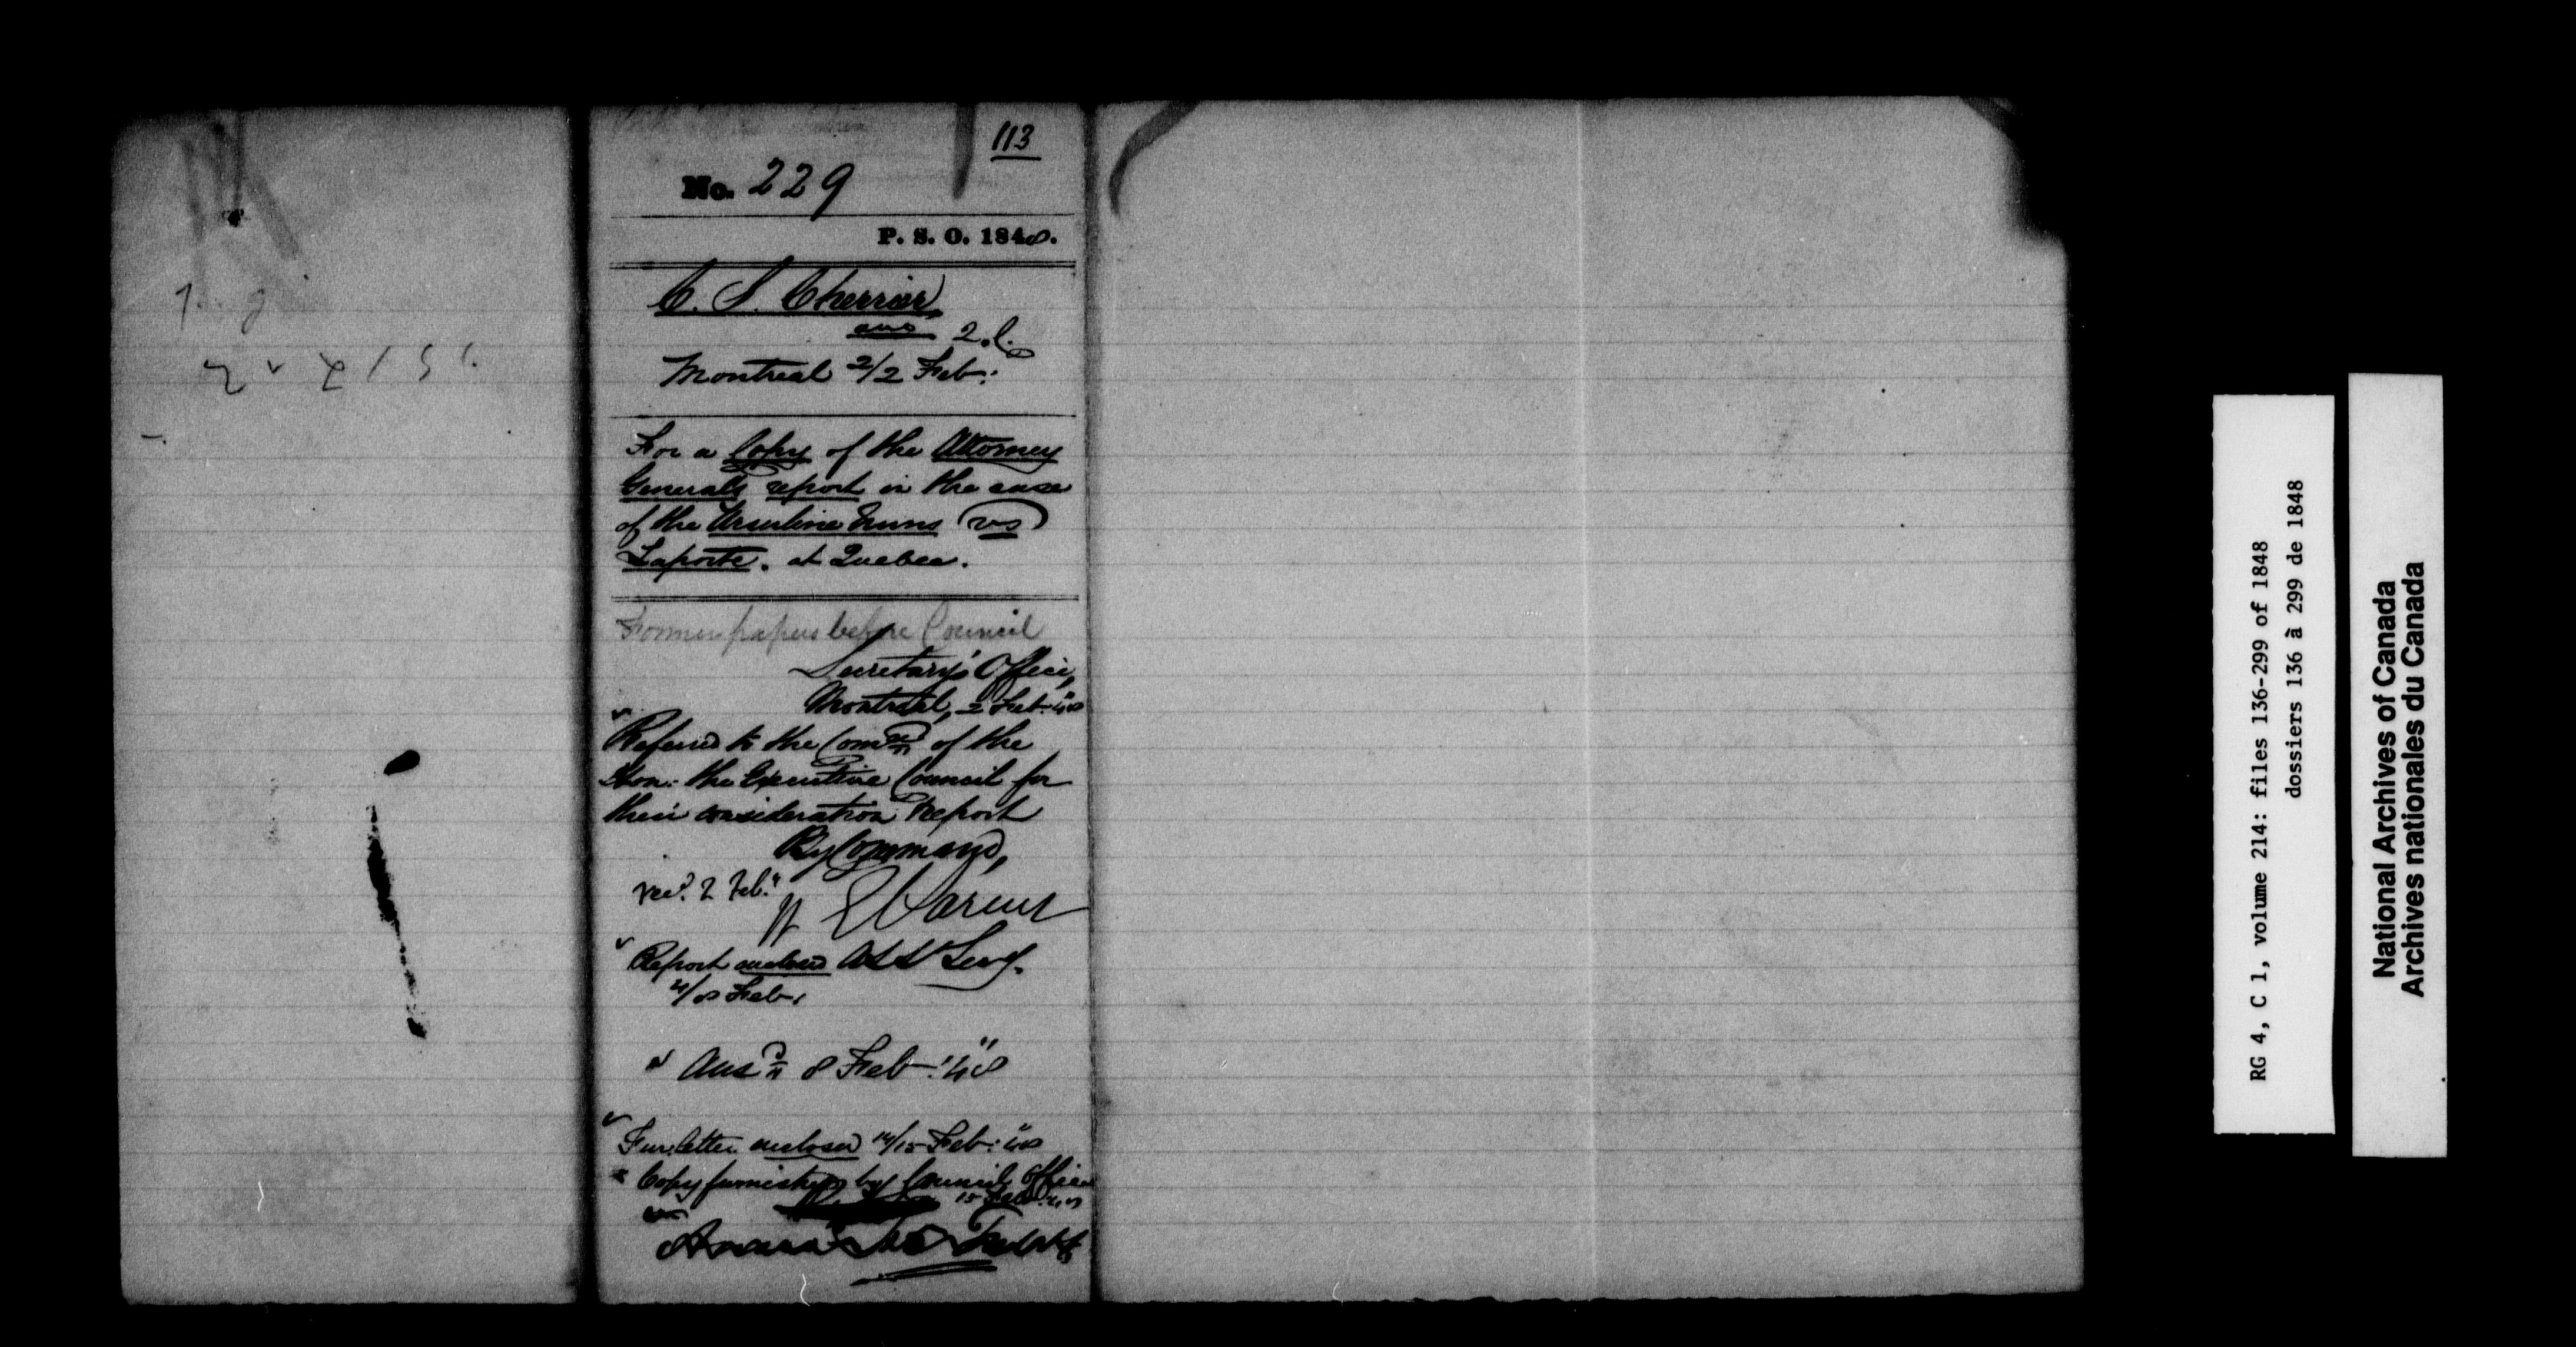 113
No. 229
P. S. O. 1848.
C. S. Cherrier,
ans 2.l.
Montreal 2/2 Feb:
For a Copy of the Attorney
Generals report in the case
of the Ursuline Nuns (vs)
Laporte. at Quebec.
Former papers before Council
Secretary's Office,
Montreal, 2 Feb: 48
Referred to the Comee of the
Hon: the Executive Council for
their consideration & Report
By Command,
recd. 2 Feb:
E Parent
Report enclosed Asst Secy.
4/8 Feb.
Ansd 8 Feb: 48
Fur. letter enclosed 14/15 Feb: 48
Copy furnished by Council Office
15 Feb: 48
RG 4, C 1, volume 214: files 136-299 of 1848
dossiers 136 à 299 de 1848
National Archives of Canada
Archives nationales du Canada